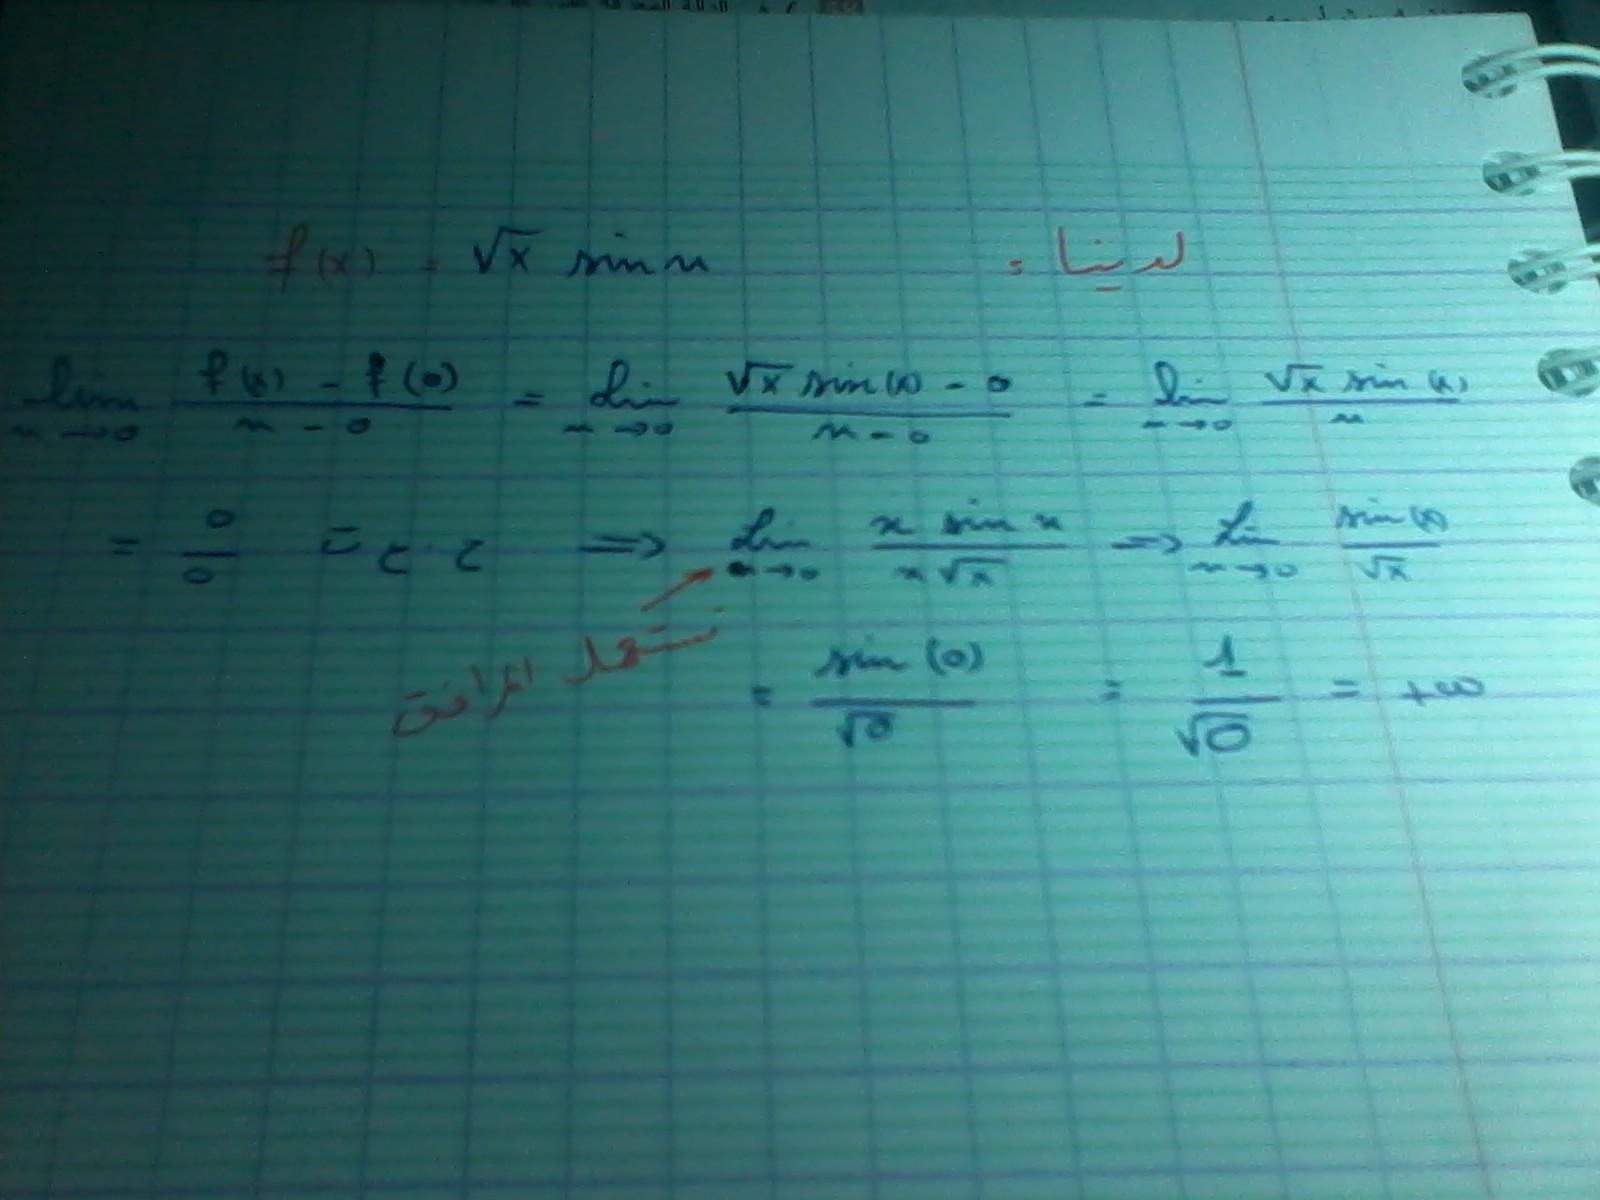 لدينا : f(x) = √x sin x
lim x→0 (f(x) - f(0))/(x - 0) = lim x→0 (√x sin(x) - 0)/(x - 0) = lim x→0 (√x sin(x))/x
= 0/0 ح ع ت ⇒ lim x→0 (x sin x)/(x√x) ⇒ lim x→0 sin(x)/√x
نستعمل المرافق
= sin(0)/√0 = 1/√0 = +∞